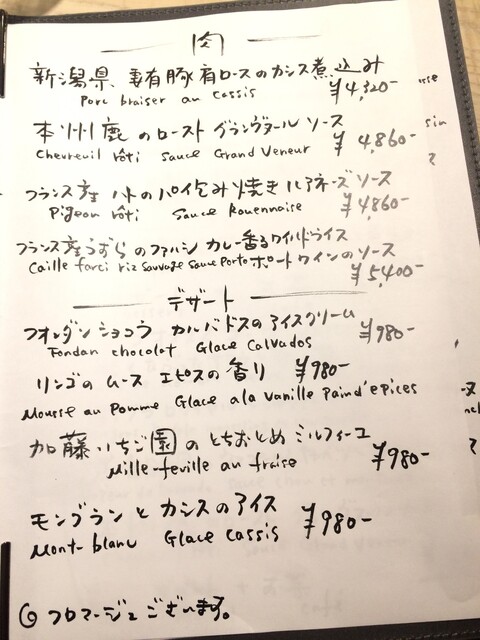 肉
新潟県 妻有豚肩ロースのカシス煮込み
Porc braiser au cassis ¥4,320-
本州鹿のロースト グランヴヌール ソース
Chevreuil rôti Sauce Grand Veneur ¥4,860-
フランス産 ハトのパイ包み焼き ルアネーズ ソース
Pigeon rôti Sauce Rouennaise ¥4860-
フランス産うずらのファルシ カレー香るワイルドライス
Caille farci riz sauvage sauce Porto ポートワインのソース
¥5,400-
デザート
フォンダン ショコラ カルバドスのアイスクリーム
Fondan chocolat Glace Calvados ¥980-
リンゴのムース エピスの香り ¥980-
Mousse au Pomme Glace a la Vanille Pain d'epices
加藤いちご園のとちおとめ ミルフィーユ
Mille-feuille au fraise ¥980-
モンブランとカシスのアイス
Mont-blanc Glace cassis ¥980-
フロマージュございます。